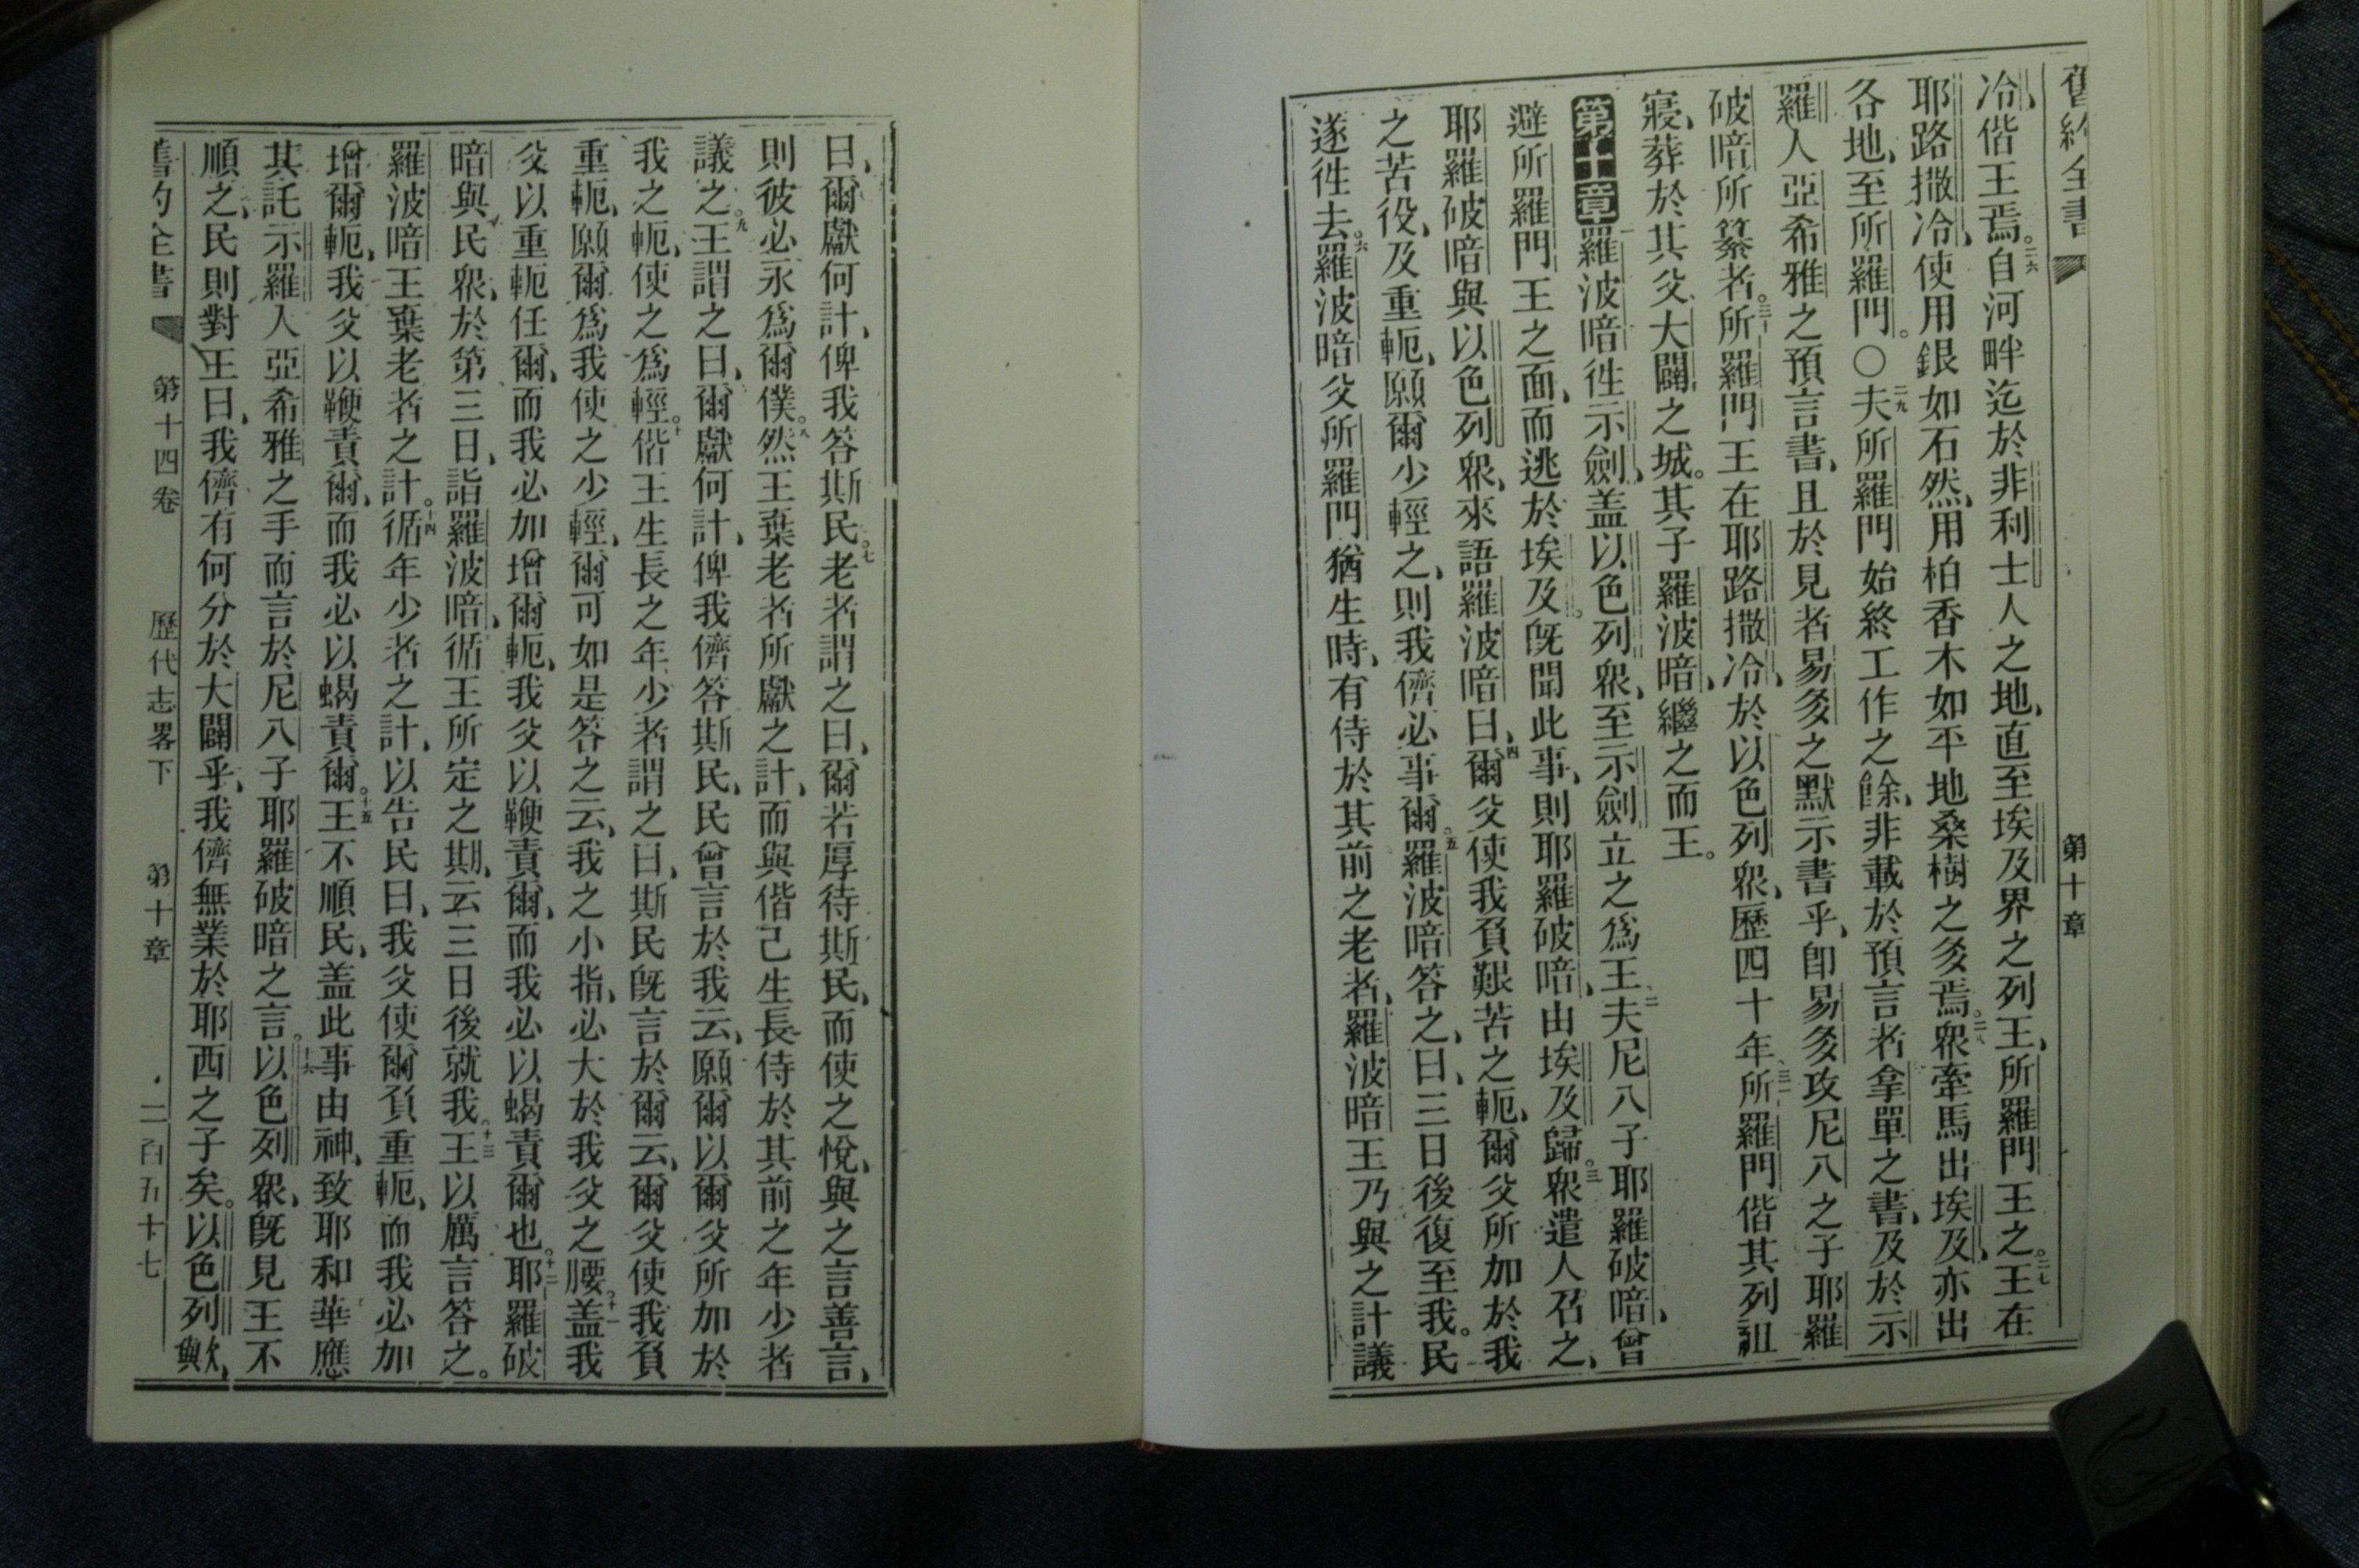 舊約全書 第十章
冷、偕王焉。二六自河畔迄於非利士人之地、直至埃及界之列王、所羅門王之。二七王在
耶路撒冷、使用銀如石然、用柏香木如平地桑樹之多焉。二八衆牽馬出埃及、亦出
各地、至所羅門。○二九夫所羅門始終工作之餘、非載於預言者拿單之書、及於示
羅人亞希雅之預言書、且於見者易多之默示書乎、卽易多攻尼八之子耶羅
破暗所纂者。三十所羅門王在耶路撒冷、於以色列衆、歷四十年、三一所羅門偕其列祖
寢、葬於其父大闢之城。其子羅波暗、繼之而王。
第十章一羅波暗徃示劍、盖以色列衆、至示劍立之爲王、二夫尼八子耶羅破暗、曾
避所羅門王之面、而逃於埃及。旣聞此事、則耶羅破暗、由埃及歸。三衆遣人召之、
耶羅破暗與以色列衆、來語羅波暗曰、四爾父使我負艱苦之軛、爾父所加於我
之苦役、及重軛、願爾少輕之、則我儕必事爾。五羅波暗答之、曰、三日後復至我。民
遂徃去。六羅波暗父所羅門猶生時、有侍於其前之老者、羅波暗王乃與之計議
曰、爾獻何計、俾我答斯民。七老者謂之曰、爾若厚待斯民、而使之悅、與之言善言、
則彼必永爲爾僕。八然王棄老者所獻之計、而與偕己生長侍於其前之年少者
議之。九王謂之曰、爾獻何計、俾我儕答斯民、民曾言於我云、願爾以爾父所加於
我之軛、使之爲輕。十偕王生長之年少者謂之曰、斯民旣言於爾云、爾父使我負
重軛、願爾爲我使之少輕、爾可如是答之云、我之小指、必大於我父之腰。十一盖我
父以重軛任爾、而我必加增爾軛、我父以鞭責爾、而我必以蝎責爾也。十二耶羅破
暗與民衆、於第三日、詣羅波暗、循王所定之期、云三日後就我。十三王以厲言答之。
羅波暗王棄老者之計。十四循年少者之計、以告民曰、我父使爾負重軛、而我必加
增爾軛、我父以鞭責爾、而我必以蝎責爾。十五王不順民、盖此事由神、致耶和華應
其託示羅人亞希雅之手而言於尼八子耶羅破暗之言。十六以色列衆、旣見王不
順之、民則對王曰、我儕有何分於大闢乎、我儕無業於耶西之子矣。以色列歟、
舊約全書 第十四卷 歷代志畧下 第十章 二百五十七